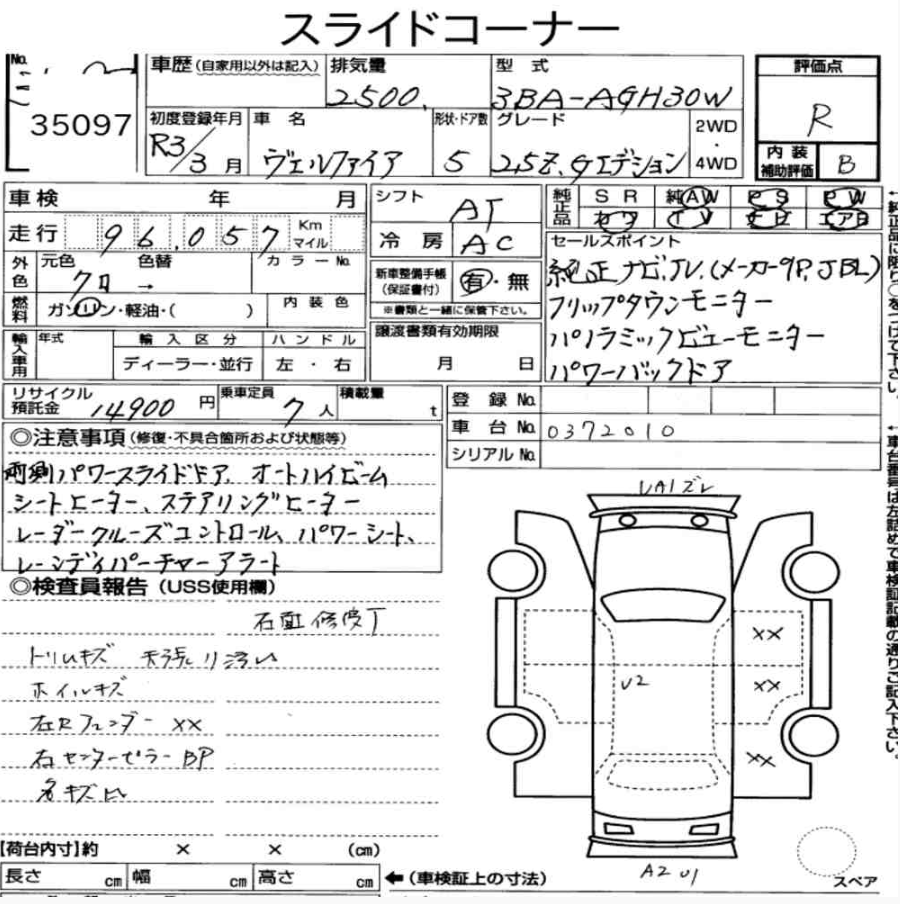 スライドコーナー
No.
35097
車歴 (自家用以外は記入)
排気量
2500.
型式
3BA-AGH30W
評価点
R
初度登録年月
R3/3月
車名
ヴェルファイア
形状・ドア数
5
グレード
2.5Z.Gエデション
2WD
・
4WD
内装
補助評価
B
車検 年 月
シフト
AT
純正品
SR 純AW PS PW
カワ TV ナビ エアB
走行 96.057 Km
マイル
冷房 AC
セールスポイント
純正ナビ.TV.(メーカー9P.JBL)
フリップダウンモニター
パノラミックビューモニター
パワーバックドア
外色
元色 色替 カラーNo.
クロ →
新車整備手帳
(保証書付)
有・無
※書類と一緒に保管下さい。
燃料
ガソリン・軽油・( )
内装色
譲渡書類有効期限
月 日
輸入車用
年式
輸入区分
ハンドル
ディーラー・並行
左・右
リサイクル
預託金
14900 円
乗車定員
7人
積載量
t
登録No.
車台No. 0372010
シリアルNo.
◎注意事項 (修復・不具合箇所および状態等)
両側パワースライドドア、オートハイビーム
シートヒーター、ステアリングヒーター
レーダークルーズコントロール、パワーシート、
レーンディパーチャーアラート
◎検査員報告 (USS使用欄)
右面修復丁
トリムキズ 天張り汚い
ホイルキズ
右Rフェンダー XX
右センターピラーBP
XX
XX
XX
U2
A2 U1
スペア
【荷台内寸】約 × × (cm)
長さ cm 幅 cm 高さ cm
←(車検証上の寸法)
←車台番号は左詰めで車検証記載の通りご記入下さい。